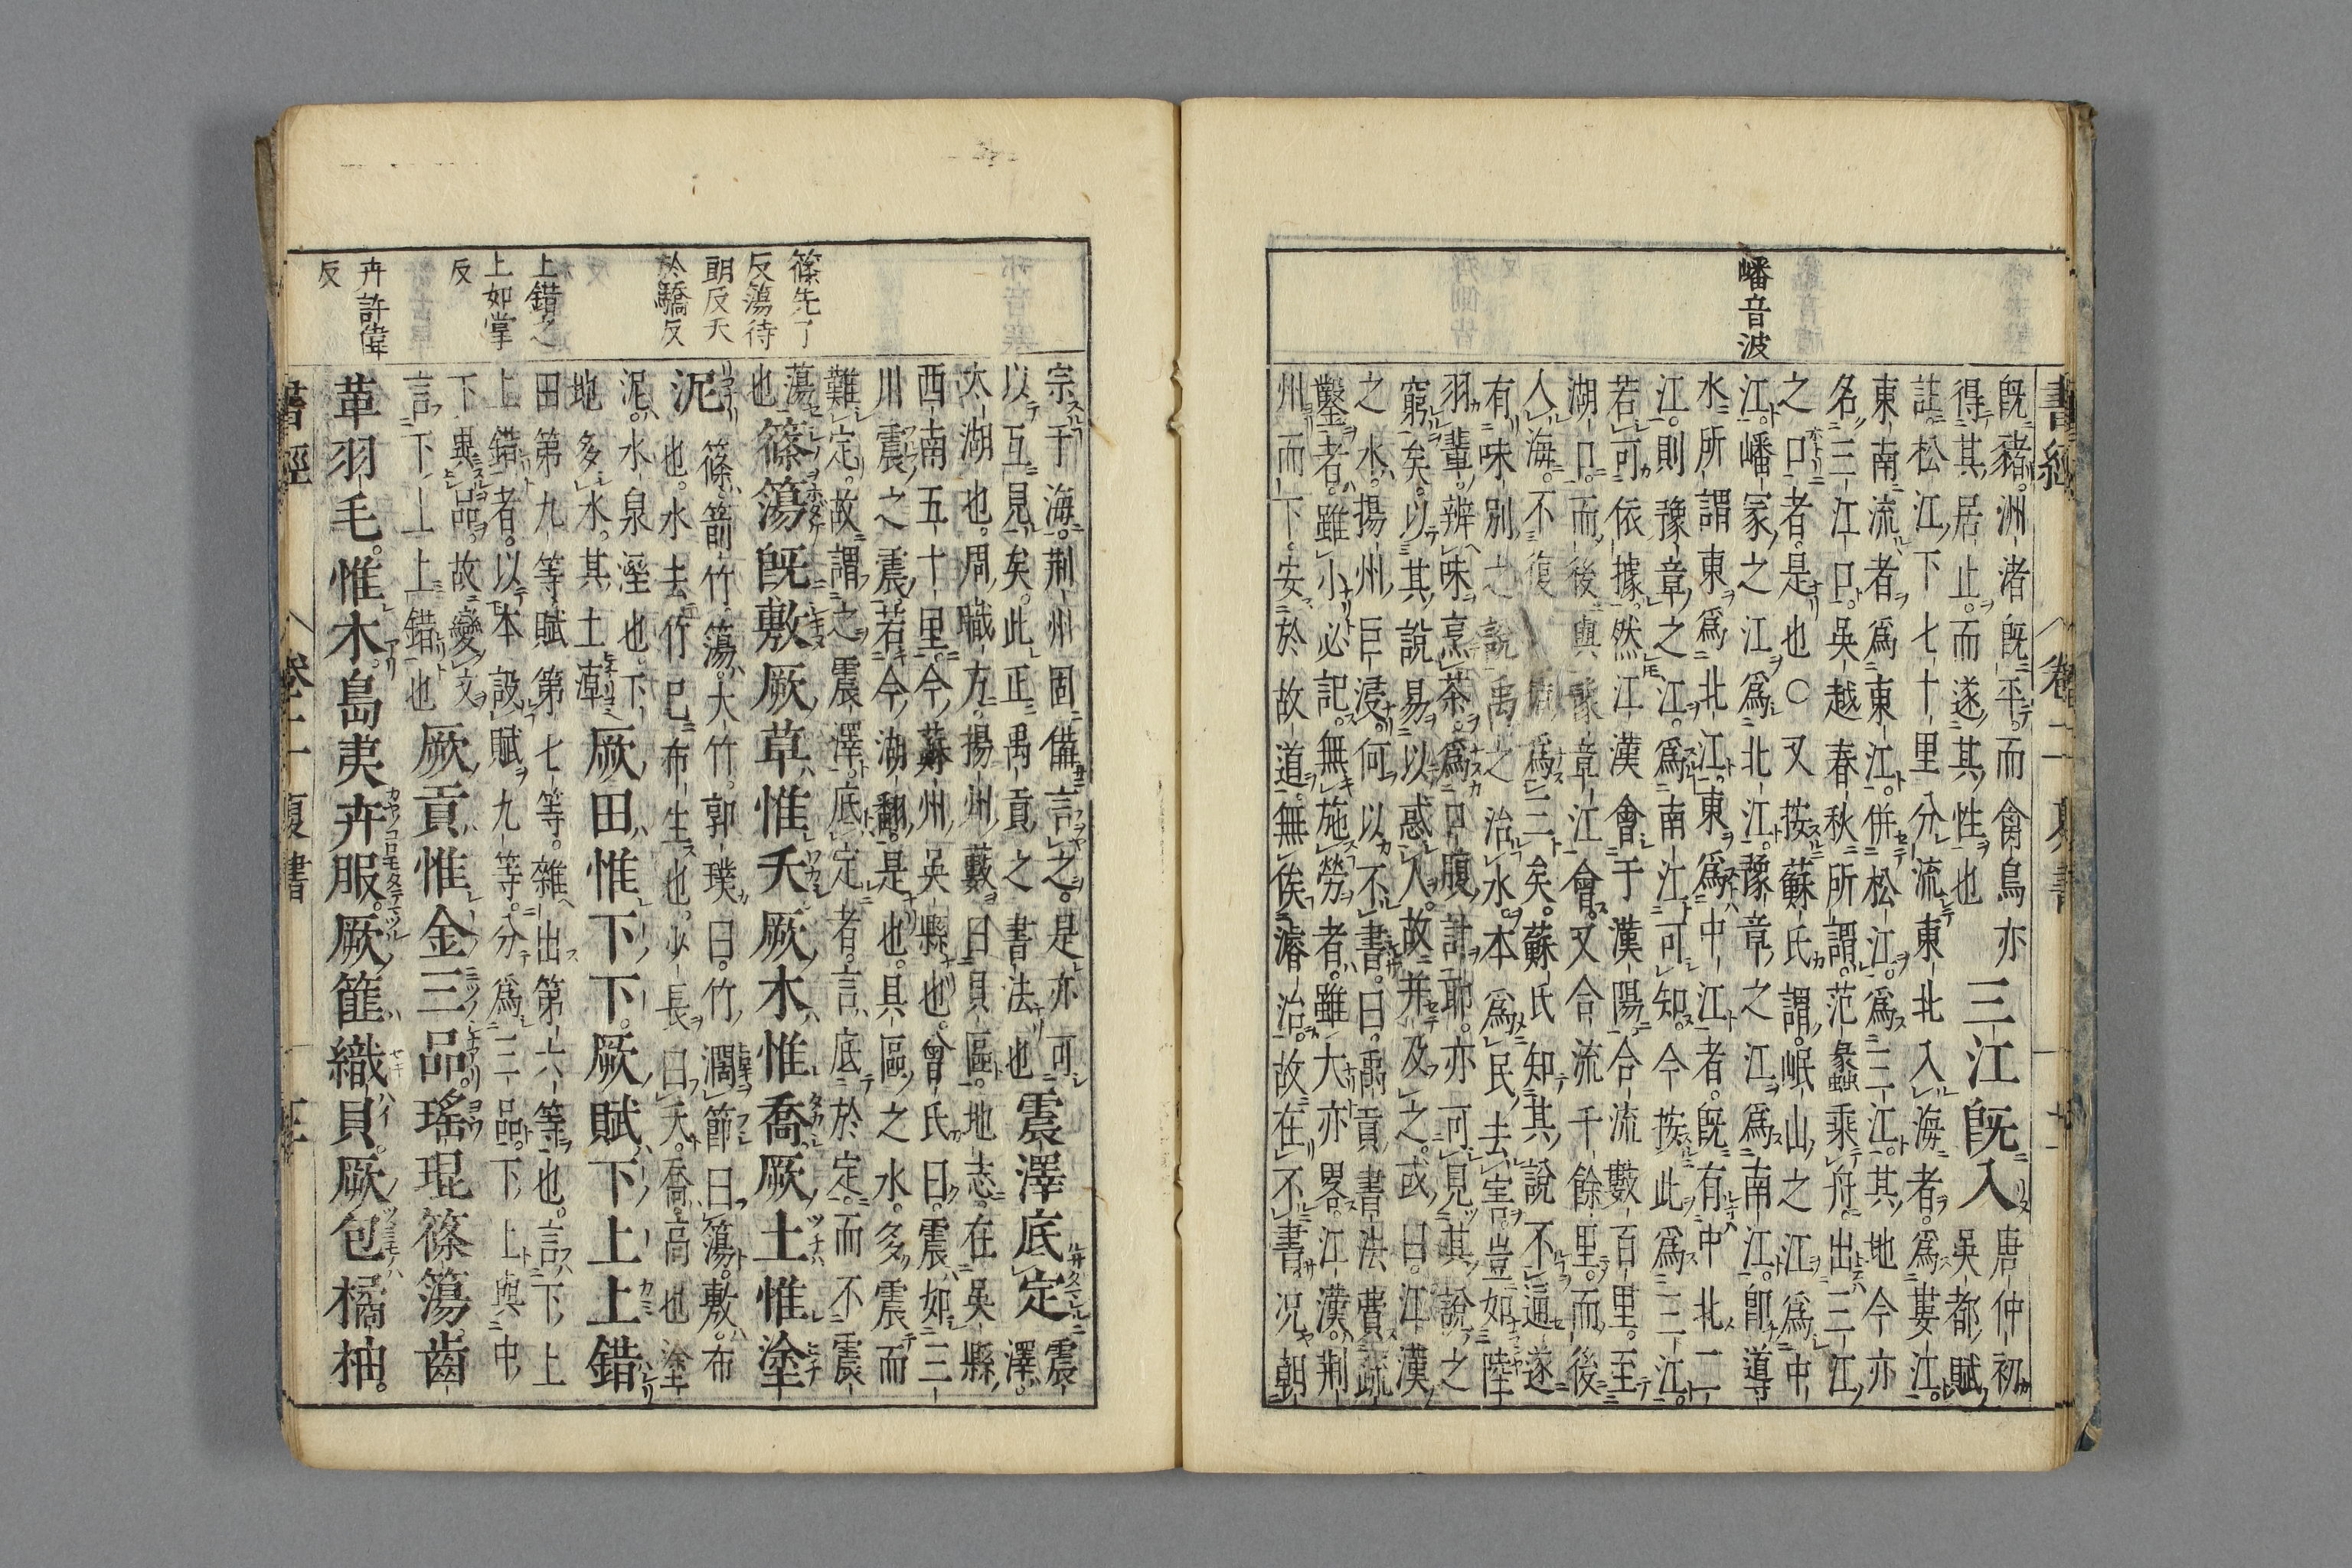 書經
卷二
夏書
十一
嶓音波
既豬洲渚既平而禽鳥亦
得其居止而遂其性也
三江既入
唐仲初
吳都賦
註松江下七十里分流東北入海者爲婁江
東南流者爲東江併松江爲三江其地今亦
名三江口吳越春秋所謂范蠡乘舟出三江
之口者是也○又按蘇氏謂岷山之江爲中
江嶓冢之江爲北江豫章之江爲南江卽導
水所謂東爲北江東爲中江者既有中北二
江則豫章之江爲南江可知今按此爲三江
若可依據然江漢會于漢陽合流數百里至
湖口而後與豫章江會又合流千餘里而後
入海不復可指爲三矣蘇氏知其說不通遂
有味別之說禹之治水本爲民去害豈如陸
羽輩辨味烹茶爲口腹計耶亦可見其說之
窮矣以其說易以惑人故幷及之或曰江漢
之水揚州巨浸何以不書曰禹貢書法費疏
鑿者雖小必記無施勞者雖大亦畧江漢荆
州而下安於故道無俟濬治故在不書況朝
宗于海荆州固備言之是亦可
以互見矣此正禹貢之書法也
震澤底定
震
澤
太湖也周職方揚州藪曰具區地志在吳縣
西南五十里今蘇州吳縣也曾氏曰震如三
川震之震若今湖翻是也具區之水多震而
難定故謂之震澤底定者言底於定而不震
蕩
也
篠簜既敷厥草惟夭厥木惟喬厥土惟塗
泥
篠箭竹簜大竹郭璞曰竹濶節曰簜敷布
也水去竹已布生也少長曰夭喬高也塗
泥水泉溼也下
地多水其土淖
厥田惟下下厥賦下上上錯
田第九等賦第七等雜出第六等也言下上
上錯者以本設賦九等分爲三品下上與中
下異品故變文
言下上上錯也
厥貢惟金三品瑤琨篠簜齒
革羽毛惟木島夷卉服厥篚織貝厥包橘柚
篠先了
反簜待
朗反夭
於驕反
上錯之
上如掌
反
卉許偉
反
書經
卷二
夏書